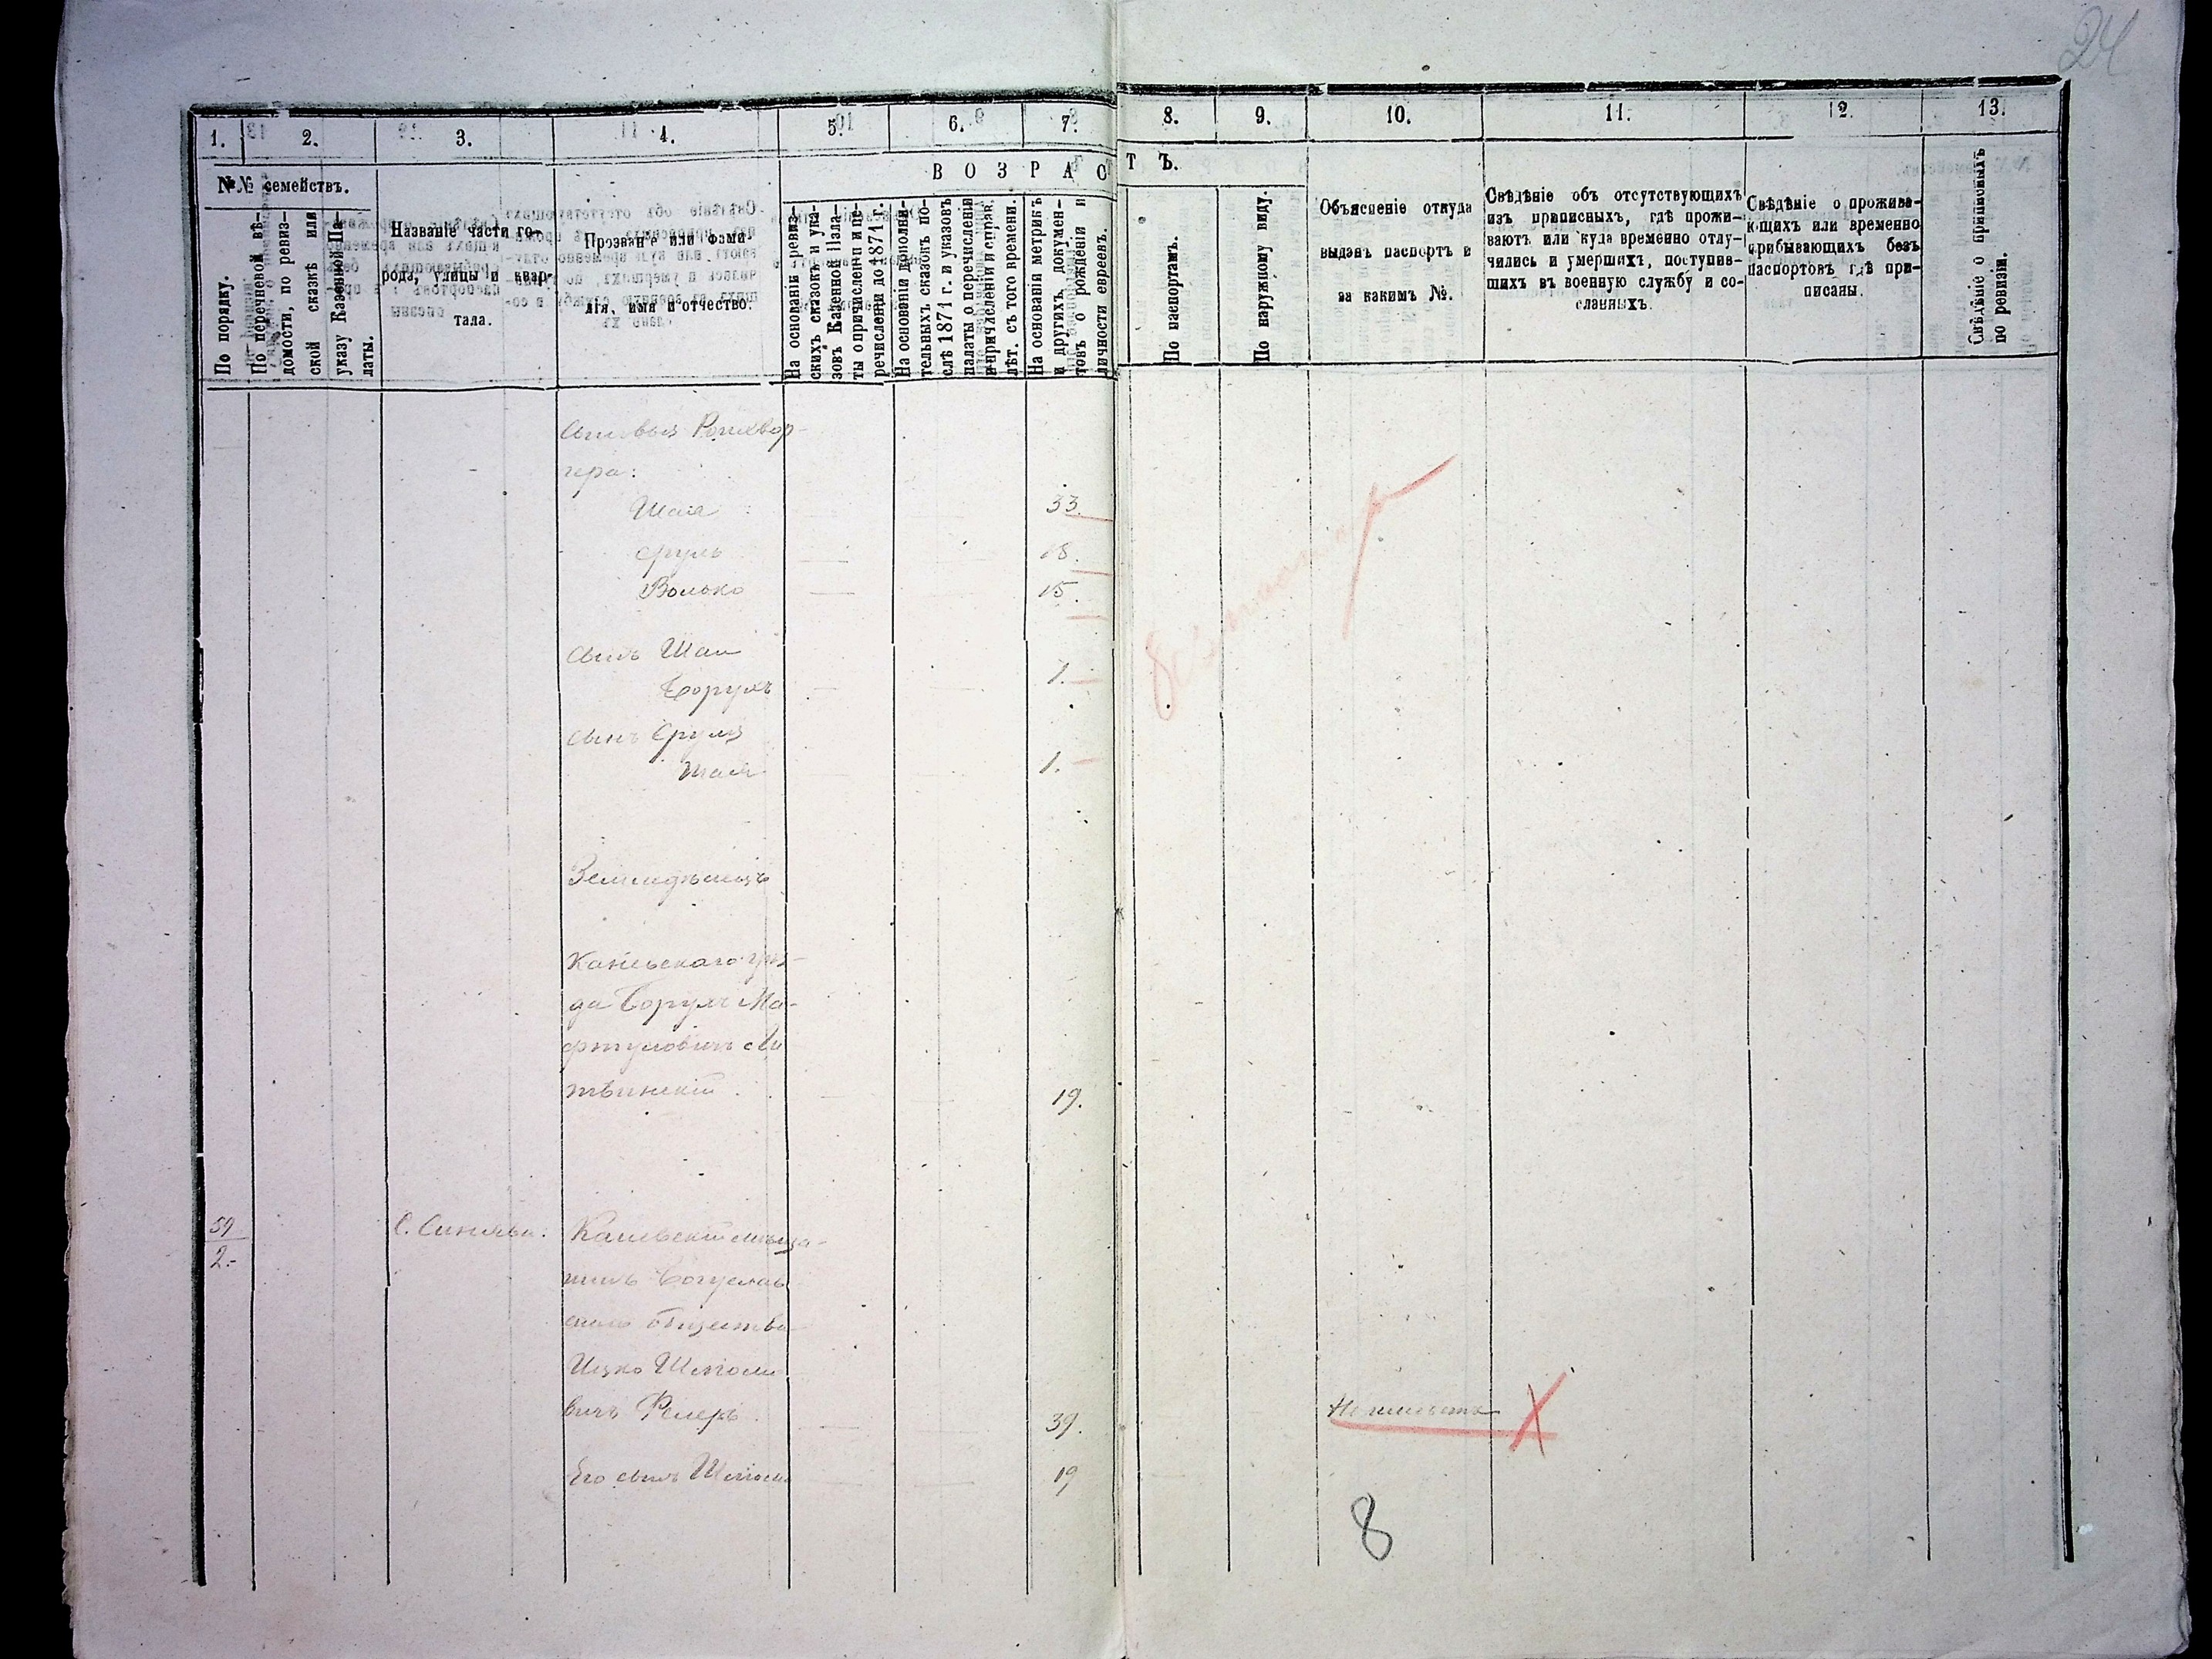 24
1. 2. 3. 4. 5. 6. 7. 8. 9. 10. 11. 12. 13.
№№ семействъ.
По порядку.
По перечневой вѣ-
домости, по ревиз-
ской сказкѣ или
указу Казенной Па-
латы.
Названіе части го-
рода, улицы и квар-
тала.
Прозваніе или фами-
лія, имя и отчество.
В О З Р А С Т Ъ.
На основаніи ревиз-
скихъ сказокъ и ука-
зовъ Казенной Пала-
ты о причисленіи и пе-
речисленіи до 1871 г.
На основаніи дополни-
тельныхъ сказокъ по-
слѣ 1871 г. и указовъ
палаты о перечисленіи
и причисленіи и справ.
лѣт. съ того времени.
На основаніи метрикъ
и другихъ, докумен-
товъ о рожденіи и
личности евреевъ.
По паспортамъ.
По наружному виду.
Объясненіе откуда
выданъ паспортъ и
за какимъ №.
Свѣдѣніе объ отсутствующихъ
изъ приписныхъ, гдѣ прожи-
ваютъ или куда временно отлу-
чились и умершихъ, поступив-
шихъ въ военную службу и со-
сланныхъ.
Свѣдѣніе о прожива-
ющихъ или временно
прибывающихъ безъ
паспортовъ гдѣ при-
писаны.
Свѣдѣніе о приписныхъ
по ревизіи.
гера:
Шая 33.
Сруль 18.
Волько 15.
Сынъ Шаи
Борухъ 1.
Сынъ Сруля
Шая 1.
Каневскаго уѣз-
да Борухъ Ма-
твинскій. 19.
59
2.- С. Синява: Каневскій мѣща-
нинъ Богуслав
общества
Ицко
вичъ 39.
Его сынъ 19
8